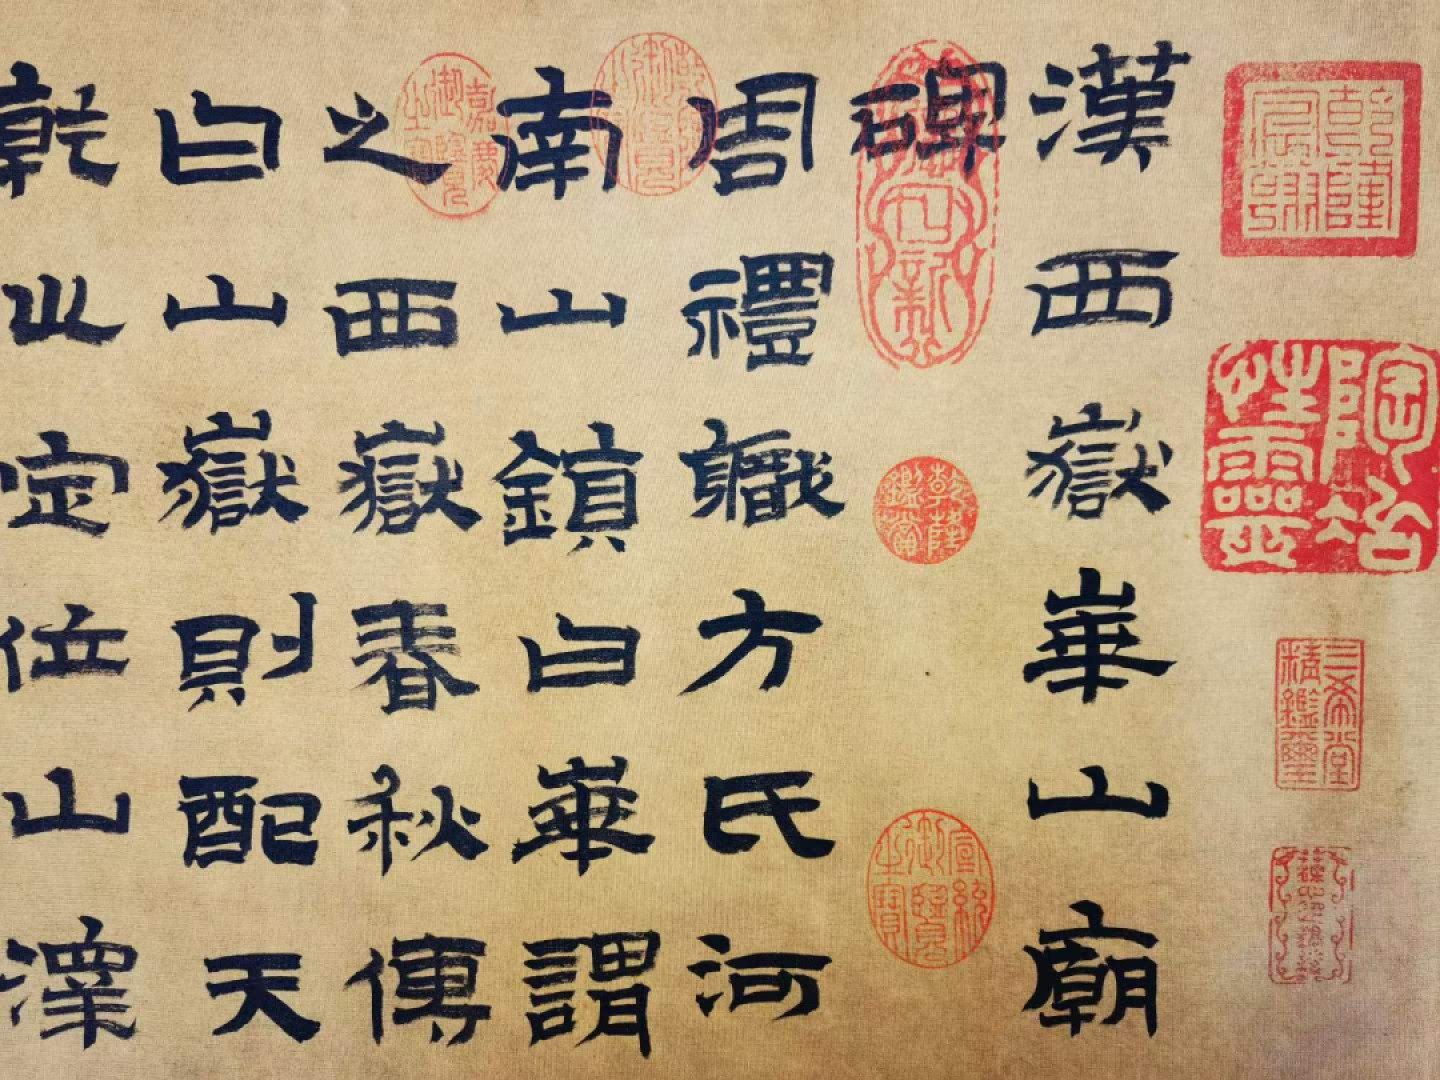 乾隆宸翰
陶冶性靈
三希堂精鑑璽
漢西嶽崋山廟
碑
乾隆鑑賞
宣統御覽之寶
周禮職方氏河
乾隆御覽之寶
南山鎮曰崋謂
嘉慶御覽之寶
之西嶽春秋傳
曰山嶽則配天
乾巛定位山澤